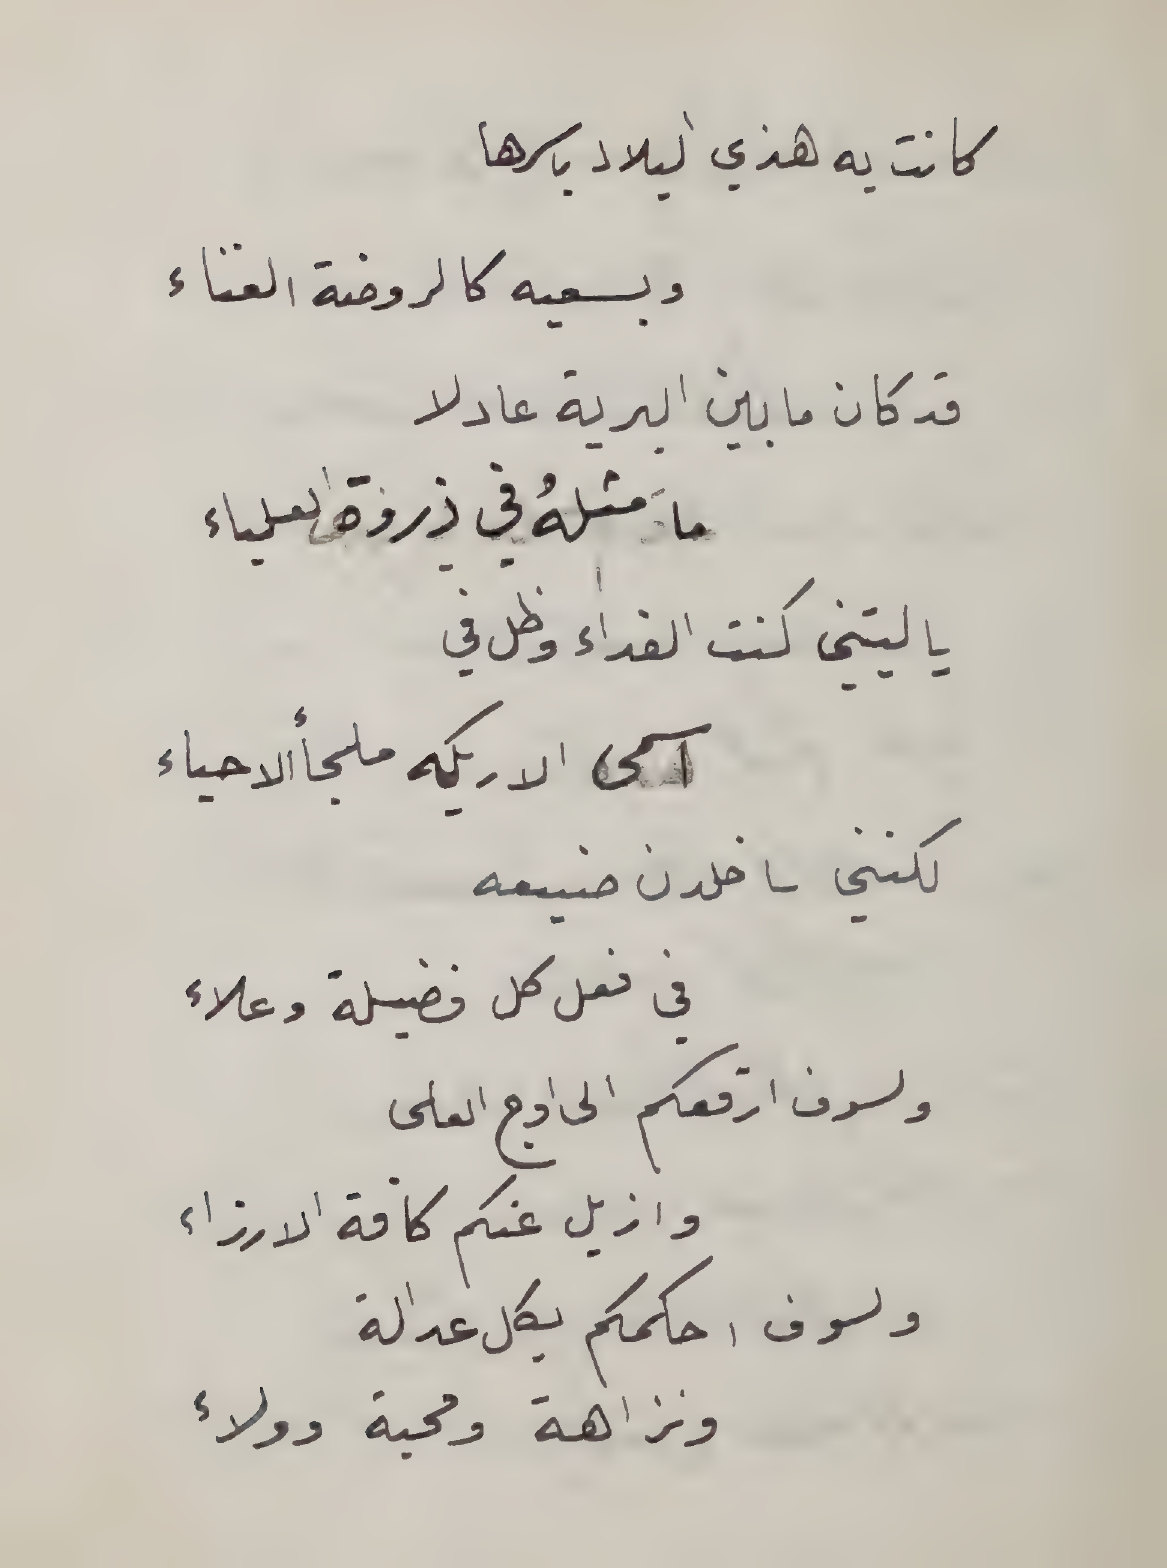 كانت به هذي البلاد باسرها
وبسعيه كالروضة الغناء
قد كان ما بين البرية عادلا
ما مثلهُ في ذروة العلياء
يا ليتني كنت الفداء وظل في
اسمى الاريكه ملجأ الاحياء
لكنني ساخلدن صنيعه
في فعل كل فضيلة وعلاء
ولسوف ارفعكم الى اوج العلى
وازيل عنكم كافة الارزاء
ولسوف احكمكم بكل عدالة
ونزاهة ومحبة وولاء